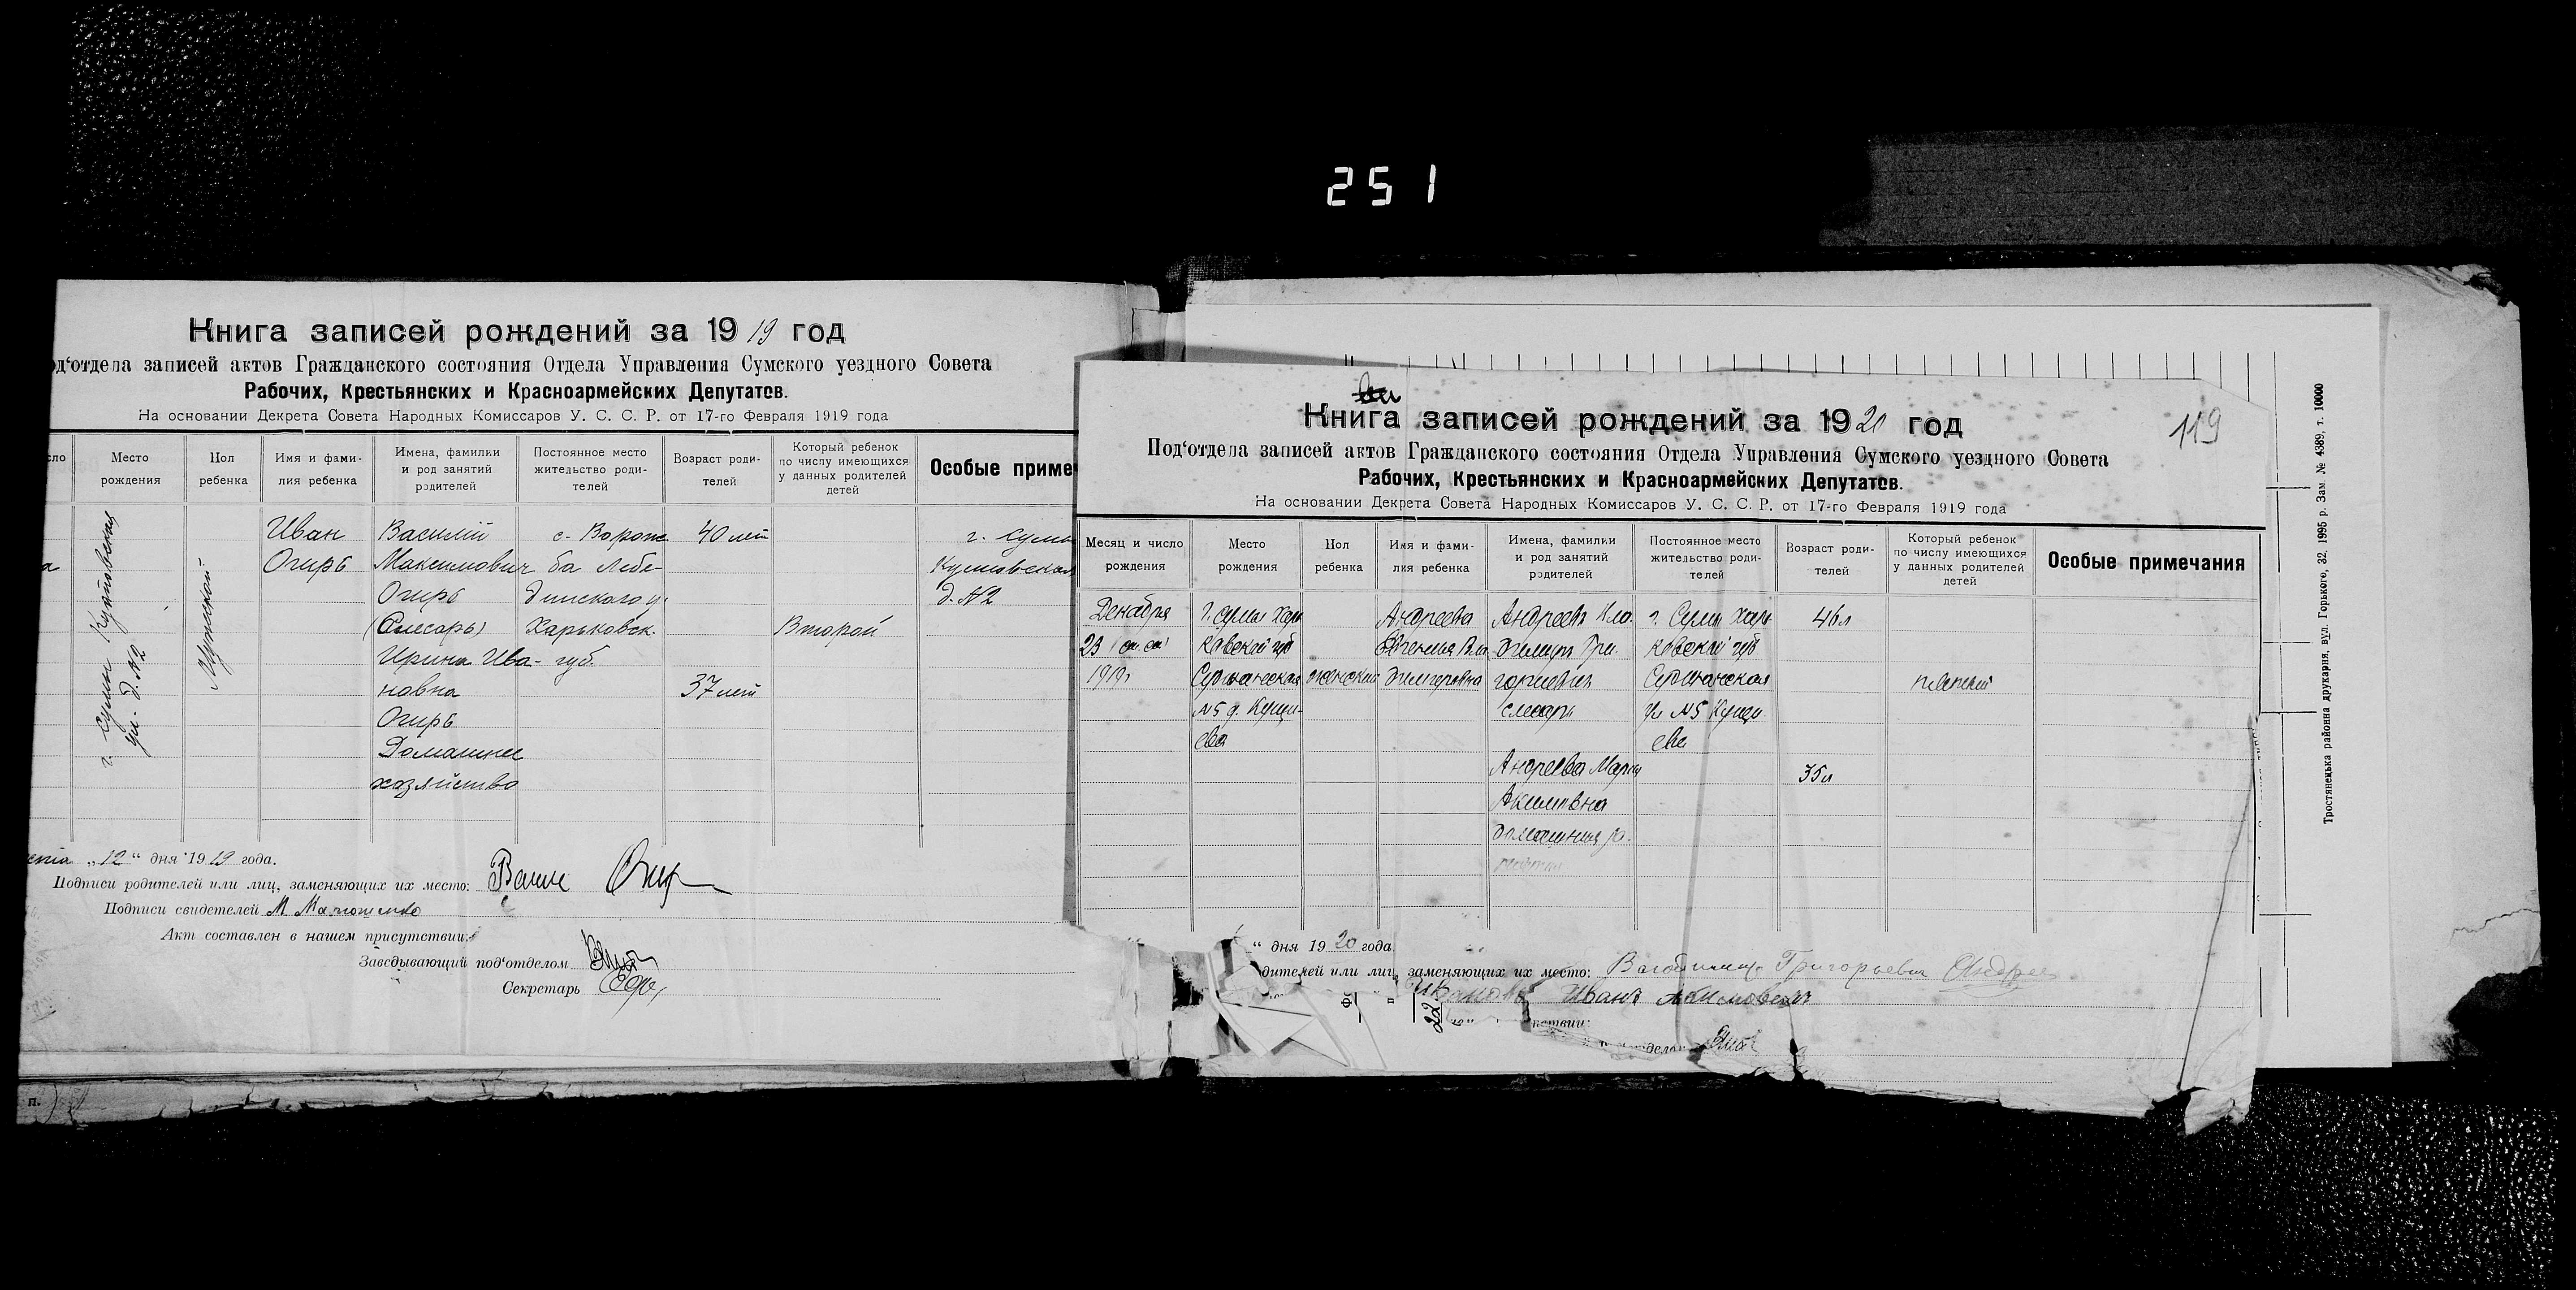 251
Книга записей рождений за 1919 год
од‘отдела записей актов Гражданского состояния Отдела Управления Сумского уездного Совета
Рабочих, Крестьянских и Красноармейских Депутатов.
На основании Декрета Совета Народных Комиссаров У. С. С. Р. от 17-го Февраля 1919 года
сло
Место рождения
Пол ребенка
Имя и фами-
лия ребенка
Имена, фамилии
и род занятий
родителей
Постоянное место
жительство роди-
телей
Возраст роди-
телей
Который ребенок
по числу имеющихся
у данных родителей
детей
Особые приме
г. Сумы
ул. д. №2
Мужской
Иван
Огирь
Василий
Максимович
Огирь
(Слесарь)
Ирина Ива-
новна
Огирь
Домашнее
хозяйство
с. Ворож
ба Лебе-
динского у.
Харьковск.
губ.
40 лет
37 лет
Второй
г. Сумы
д. №2
„12“ дня 1919 года.
Подписи родителей или лиц, заменяющих их место:
Подписи свидетелей М.
Акт составлен в нашем присутствии:
Заведывающий под‘отделом
Секретарь
119
Книга записей рождений за 1920 год
Под‘отдела записей актов Гражданского состояния Отдела Управления Сумского уездного Совета
Рабочих, Крестьянских и Красноармейских Депутатов.
На основании Декрета Совета Народных Комиссаров У. С. С. Р. от 17-го Февраля 1919 года
Месяц и число
рождения
Место
рождения
Пол
ребенка
Имя и фами-
лия ребенка
Имена, фамилии
и род занятий
родителей
Постоянное место
жительство роди-
телей
Возраст роди-
телей
Который ребенок
по числу имеющихся
у данных родителей
детей
Особые примечания
Декабря
23
1919г
г. Сумы Харь
ковской губ
№5 д.
ева
женский
Андреева
Евгения Вла
димировна
Андреев Вла
димир Гри-
горьевич
слесарь
Андреева Мария
Акимовна
домашняя ра-
г. Сумы Харь
ковской губ
ул №5
ева
46л
35л
первый
“ дня 1920 года.
дителей или лиц, заменяющих их место: Владимир Григорьевич Андреев
Иван Акимович
22
ствии:
делом
Тростянецька районна друкарня, вул. Горького, 32. 1995 р. Зам. № 4389, т. 10000
п.